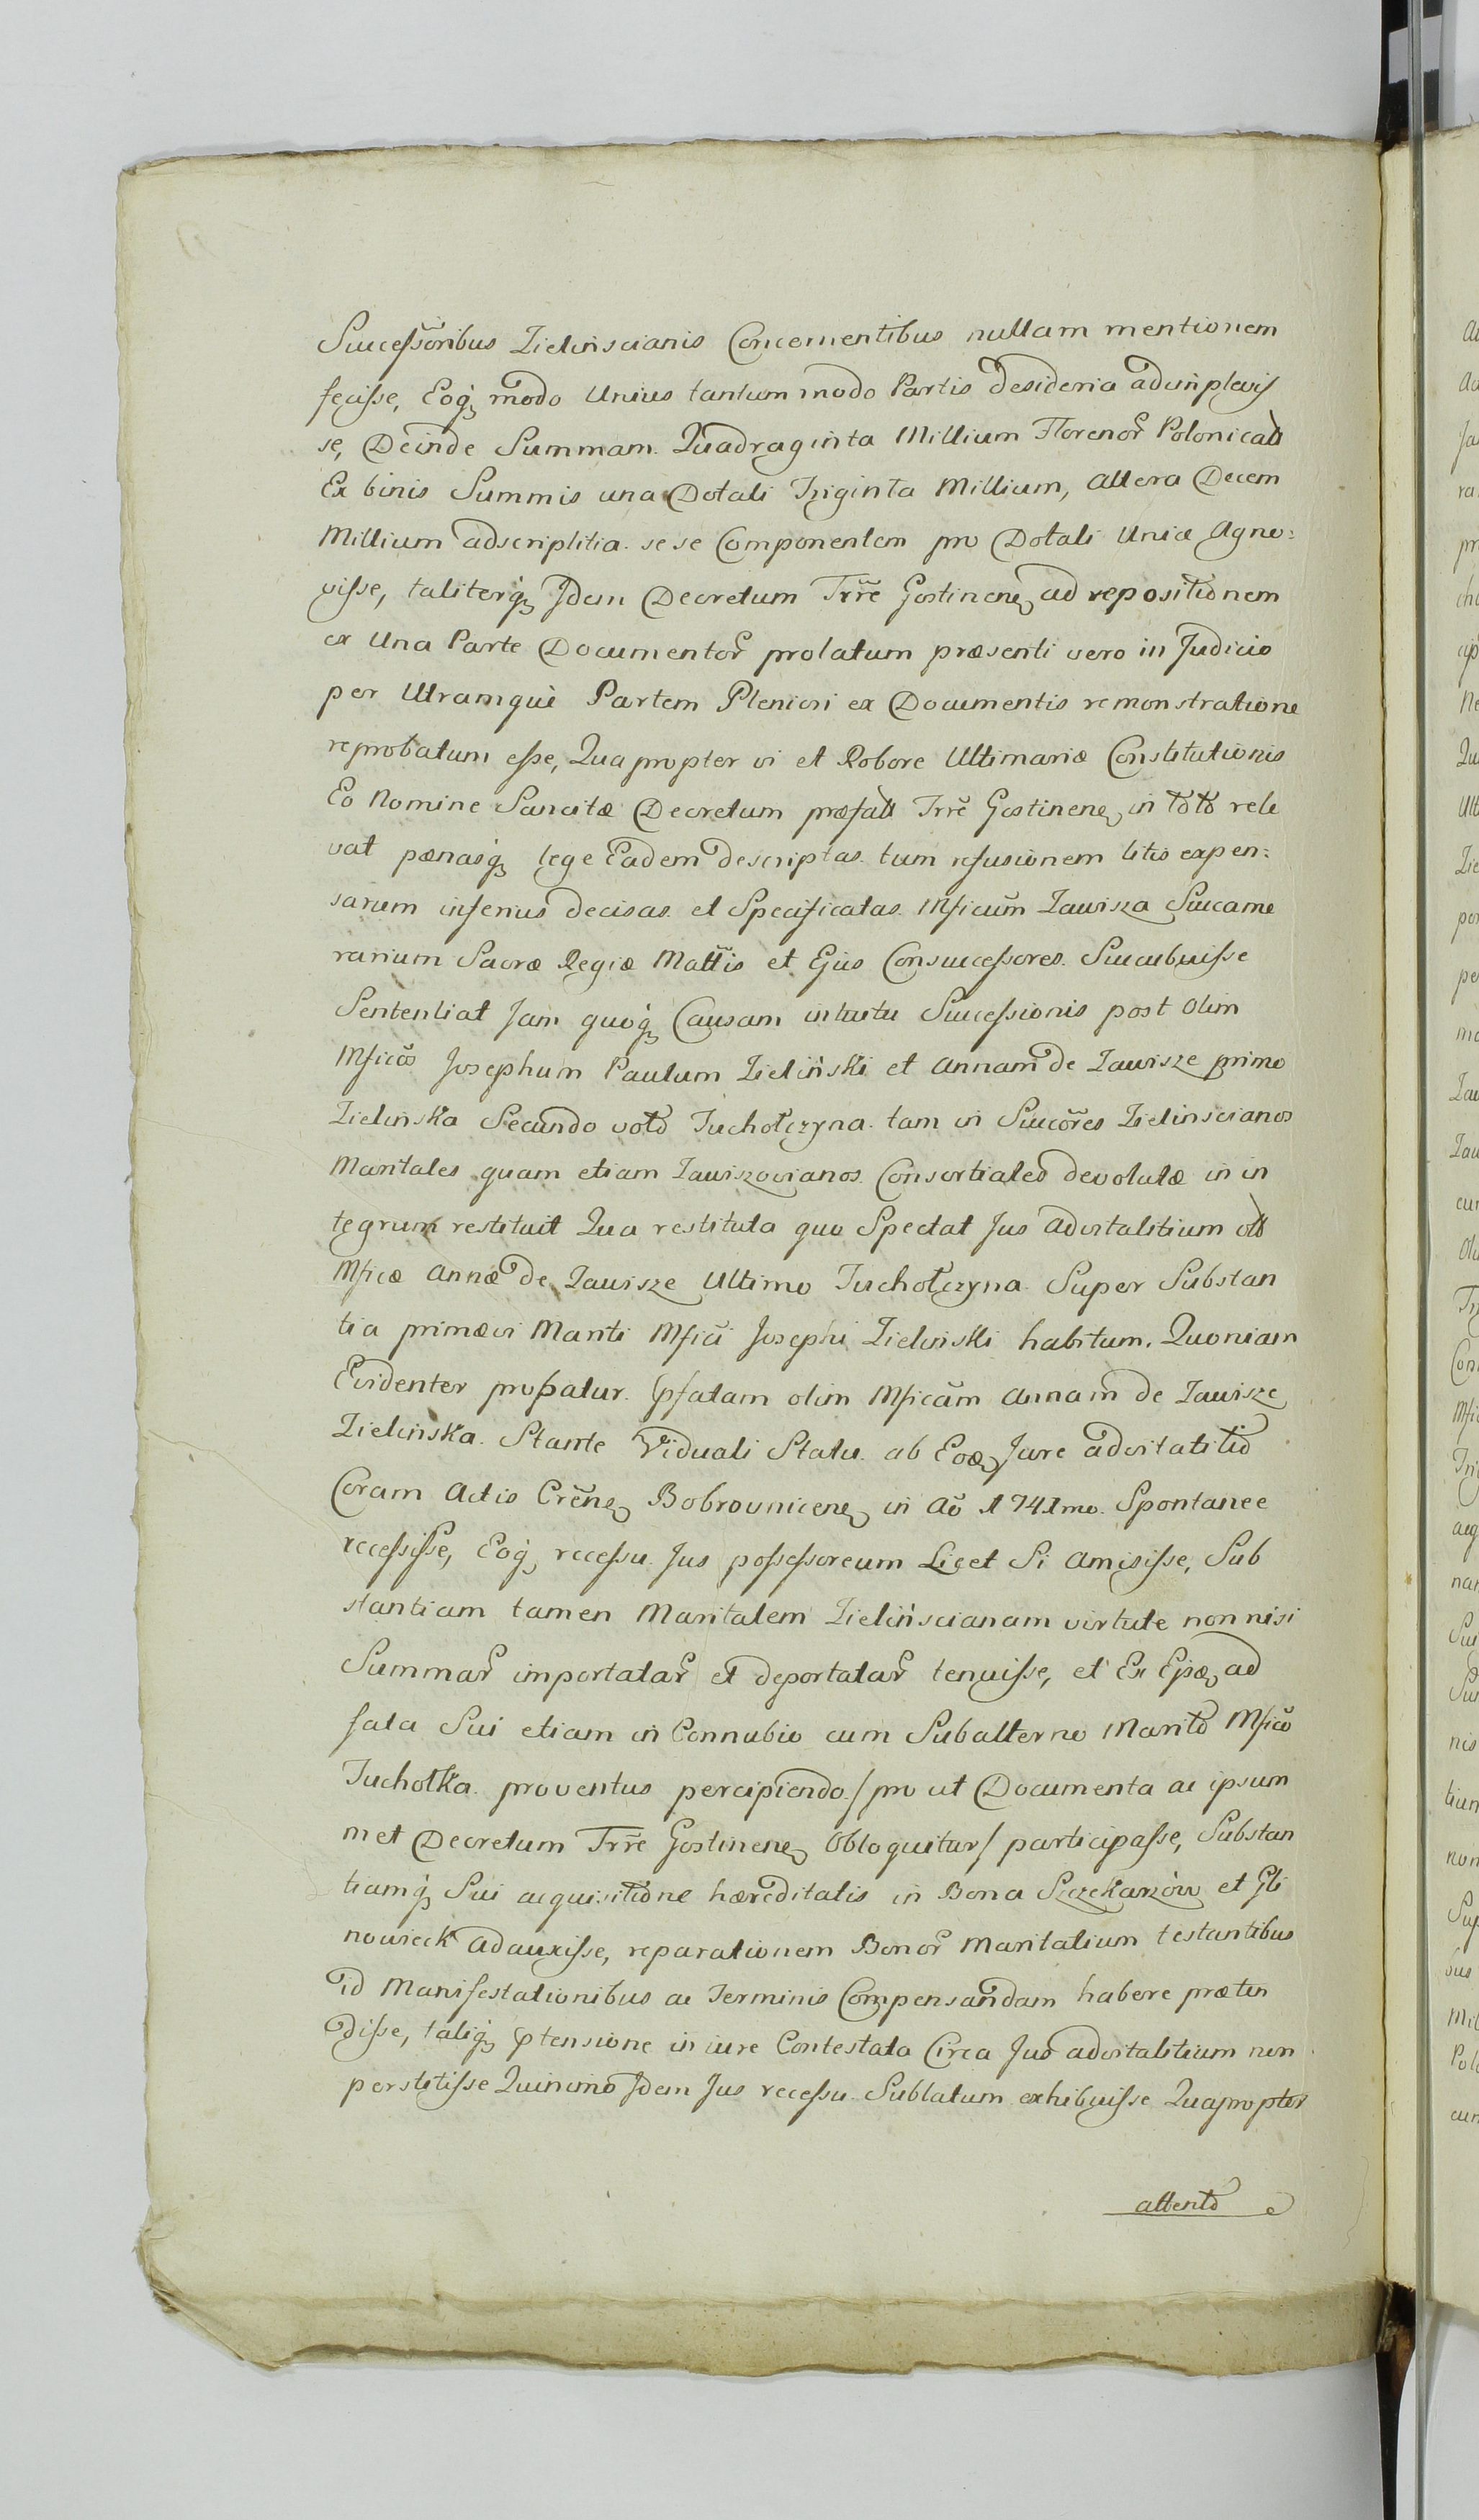 Successoribus Zielinscianis Concernentibus nullam mentionem
fecisse, Eoq̨ modo Unius tantummodo Partis desideria adimplevis
se, Deinde Summam Quadraginta Millium Florenor Polonicall
Ex binis Summis una Dotali Triginta Millium, altera Decem
Millium adscriptitia sese Componentem pro Dotali Unica Agno:
visse, taliterq̨ Idem Decretum Trrẽ Gostinen ad repositionem
ex Una Parte Documentor prolatum præsenti vero in Judicio
per Utramquè Partem Pleniori ex Documentis remonstratione
reprobatum esse, Quapropter vi et Robore Ultimariæ Constitutionis
Eo Nomine Sancitæ Decretum præfall Trrẽ Gostinen in toto rele
vat pænasq̨ lege Eadem descriptas tum refusionem litis expen:
sarum inferius decisas et Specificatas Mficum̃ Zawisza Succame
rarium Sacræ Regiæ Mattis et Ejus Consuccessores Succubuisse
Sententiat Jam quoq̨ Causam intuitu Successionis post Olim
Mficos Josephum Paulum Zieliński et Annam de Zawisze primo
Zielinska Secundo voto Tuchołczyna tam in Succõres Zielinscianos
Maritales quam etiam Zawiszovianos Consortiales devolutæ in in
tegrum restituit Qua restituta quo Spectat Jus advitalitium oll
Mficæ Annæ de Zawisze Ultimo Tuchołczyna Super Substan
tia primævi Mariti Mfici Josephi Zielinski habitum. Quoniam
Evidenter probatur Pfatam olim Mficam̃ Annam de Zawisze
Zielińska Stante Viduali Statu ab Eoõ Jure advitalitio
Coram Actis Crẽn Bobrovnicen in Aõ 1741mo Spontanee
recessisse, Eoq̨ recessu Jus possessoreum Licet Si amisisse, Sub
stantiam tamen Maritalem Zielińscianam virtute non nisi
Summar importatar et deportatar tenuisse, et Ex Ejsõ ad
fata Sui etiam in Connubio cum Subalterno Marito Mfico
Tuchołka proventus percipiendo / pro ut Documenta ac ipsum
met Decretum Trrẽ Gostinen Obloquitur / participasse, Substan
tiamq̨ Sui acquisitione hæreditatis in Bona Szczekarzów et Gli
nowieck adauxisse, reparationem Bonor Maritalium testantibus
id Manifestationibus ac Terminis Compensandam habere præten
disse, taliq̨ ptensione in iure Contestata Circa Jus advitalitium non
perstitisse Quinimo Idem Jus recessu Sublatum exhibuisse Quapropter
attento